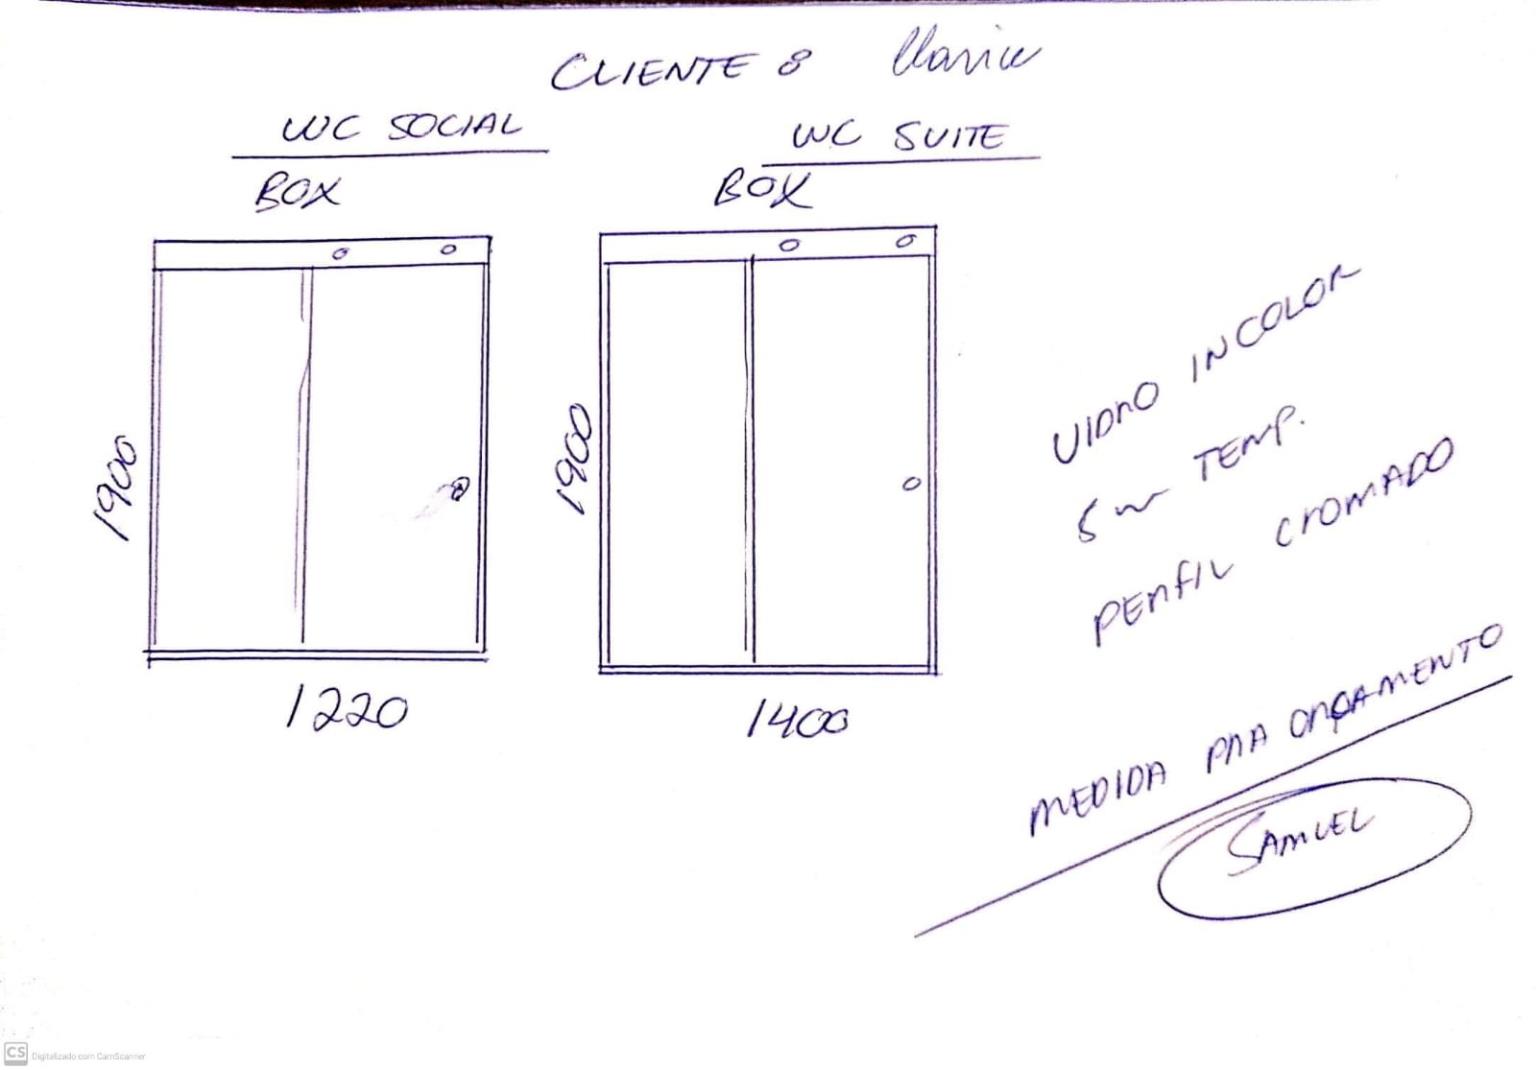 CLIENTE 8
WC SOCIAL
BOX
1900
1220
WC SUITE
BOX
1900
1400
VIDRO INCOLOR
TEMP.
PERFIL CROMADO
MEDIDA PRA ORÇAMENTO
SAMUEL
CS Digitalizado com CamScanner